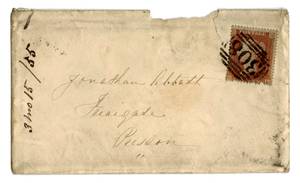 3 mo 15/55
Jonathan Abbatt
Fishergate
Preston
308